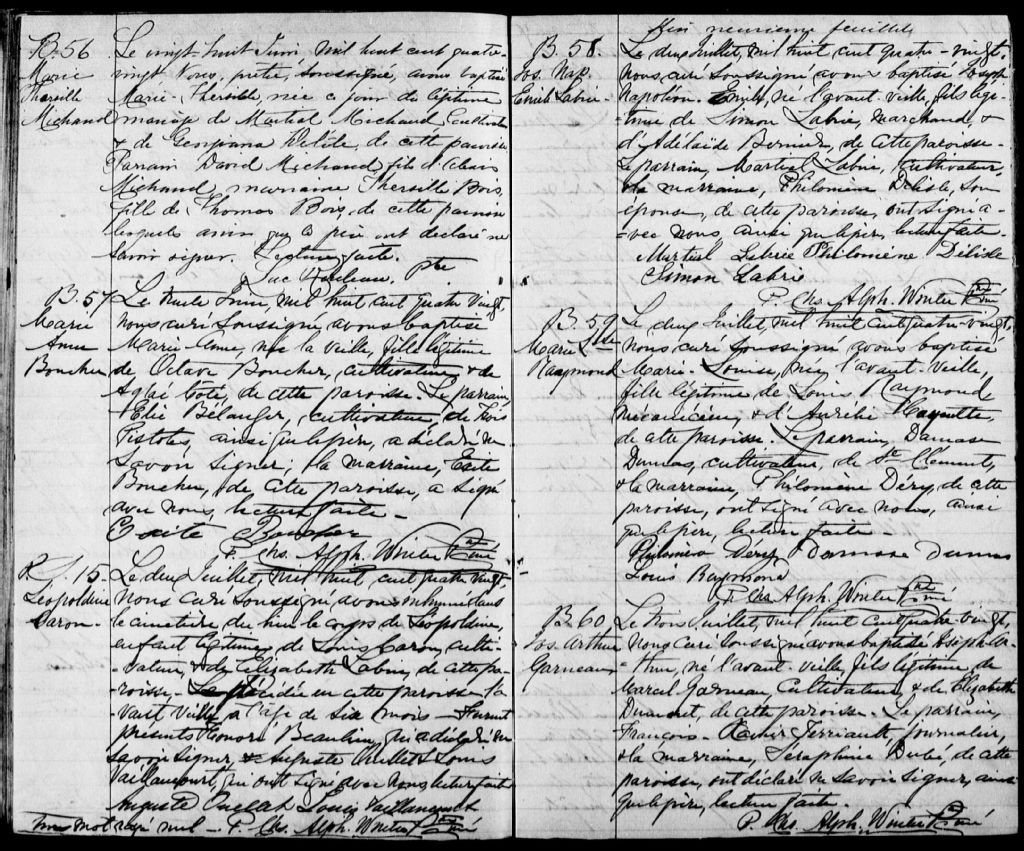 B. 56
Marie
Thersille
Michaud
Le vingt-huit Juin mil huit cent quatre-
vingt Nous, prêtre, soussigné, avons baptisé
Marie-Thersille, née ce jour du légitime
mariage de Martial Michaud cultivateur
& de Georgiana Delisle, de cette paroisse
Parrain David Michaud fils d'
Michaud, marraine Thersille Bois,
fille de Thomas Bois, de cette paroisse
lesquels ainsi que le père ont déclaré ne
savoir signer. Lecture faite.
Luc ptre
B. 57
Marie
Anne
Boucher
Le trente Juin mil huit cent quatre vingt,
nous curé soussigné avons baptisé
Marie Anne, née la veille, fille légitime
de Octave Boucher, cultivateur & de
Aglaé Côté, de cette paroisse. Le parrain,
Elie Bélanger, cultivateur, de Trois
Pistoles, ainsi que le père, a déclaré ne
savoir signer; la marraine, Exite
Boucher, de cette paroisse, a signé
avec nous, lecture faite.
Exité Boucher
P. Chs. Alph. Winter Ptre curé
S. 15.
Leopoldine
Caron
Le deux Juillet, mil huit cent quatre vingt,
Nous curé soussigné avons inhumé dans
le cimetière du lieu le corps de Léopoldine,
enfant légitime de Louis Caron, culti-
vateur, & de Elizabeth Labrie de cette pa-
roisse. décédée en cette paroisse l'a-
vant veille, à l'âge de six mois. Furent
présents Honoré Beaulieu, qui a déclaré ne
savoir signer, & Auguste Ouellet & Louis
Vaillancourt, qui ont signé avec nous, lecture faite
Auguste Ouellet Louis Vaillancourt
mot rayé nul. P. Chs. Alph. Winter Ptre curé
neuvième feuillet
B. 58.
Jos. Nap.
Emile Labrie
Le deux Juillet, mil huit cent quatre-vingt,
Nous curé soussigné avons baptisé Joseph
Napoléon Emile, né l'avant-veille, fils légi-
time de Simon Labrie, marchand, &
d'Adélaïde Bernier, de cette paroisse.
Le parrain, Martial Labrie, cultivateur,
& la marraine, Philomène Délisle, son
épouse, de cette paroisse, ont signé a-
vec nous, ainsi que le père, lecture faite.
Martiel Labrie Philomène Délisle
Simon Labrie
P. Chs. Alph. Winter Ptre curé
B. 59
Marie Lse
Raymond
Le deux Juillet, mil huit cent quatre-vingt,
nous curé soussigné avons baptisé
Marie-Louise, née l'avant-veille,
fille légitime de Louis Raymond,
mécanicien, & d'Aurélie
de cette paroisse. Le parrain, Damase
Dumas, cultivateur, de St Clément,
& la marraine, Philomène Déry, de cette
paroisse, ont signé avec nous, ainsi
que le père, lecture faite.
Philomène Dery Damase Dumas
Louis Raymond
P. Chs. Alph. Winter Ptre curé
B. 60
Jos. Arthur
Garneau
Le trois Juillet, mil huit cent quatre vingt,
nous curé soussigné avons baptisé Joseph Ar-
thur, né l'avant-veille, fils légitime de
Marcel Garneau, cultivateur, & de Elizabeth
Dumont, de cette paroisse. Le parrain,
François-Xavier Terriault, journalier,
& la marraine, Séraphine Dubé, de cette
paroisse, ont déclaré ne savoir signer, ainsi
que le père, lecture faite.
P. Chs. Alph. Winter Ptre curé